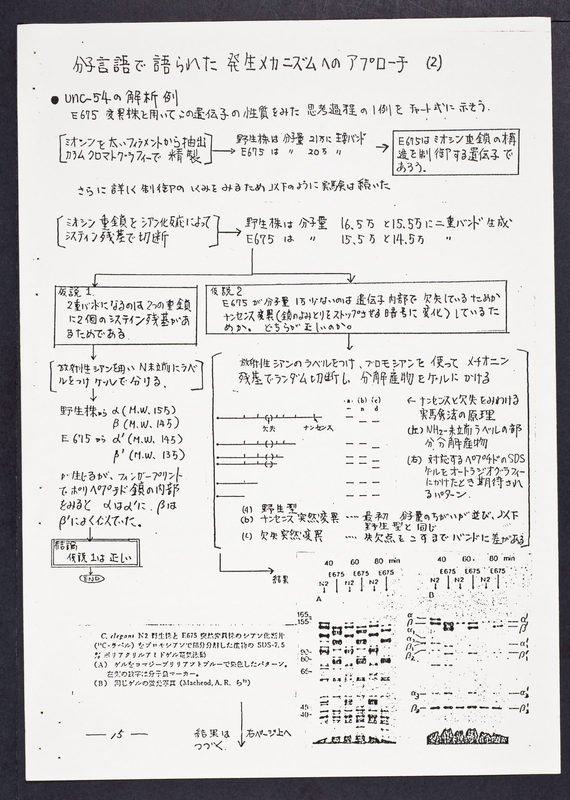 分子言語で語られた 発生メカニズムへのアプローチ (2)
● unc-54の解析例
E675 変異株を用いてこの遺伝子の性質をみた 思考過程の1例を チャート式に示そう.
ミオシンを太いフィラメントから抽出
カラムクロマトグラフィーで 精製
野生株は 分子量 21万に主要バンド
E675 は 〃 20万 〃
E675はミオシン重鎖の構
造を制御する遺伝子で
あろう.
さらに詳しく 制御のしくみをみるため以下のように実験は続いた
ミオシン重鎖をシアン化反応によって
システイン残基で切断
野生株は 分子量 16.5万 と15.5万に二重バンド生成
E675 は 〃 15.5万と14.5万 〃
仮説 1
2重バンドになるのは2つの重鎖
に2個のシステイン残基があ
るためである.
仮説 2
E675が分子量1万少ないのは遺伝子内部で欠失しているためか
ナンセンス変異(鎖のよみとりをストップさせる暗号に変化)しているた
めか. どちらが正しいのか.
放射性シアンを用い N末端にラベ
ルをつけゲルで分ける.
野生株から α (M.W. 155)
β (M.W. 145)
E675から α' (M.W. 145)
β' (M.W. 135)
が生じるが, フィンガープリント
でポリペプチド鎖の内部
をみると αはα'に. βは
β'によくにていた.
結論
仮説1は正しい
END
放射性シアンのラベルをつけ, ブロモシアンを使って メチオニン
残基でランダム切断し, 分解産物をゲルにかける
a (b) (c)
n d
欠失 ナンセンス
← ナンセンスと欠失をみわける
実験法の原理
(左) NH₂-末端ラベルの部
分分解産物
(右) 対応するペプチドのSDS
ゲルをオートラジオグラフィー
にかけたとき期待され
るパターン.
(a) 野生型
(b) ナンセンス突然変異 ---- 最初 分子量のちがいが並び, 以下
野生型と同じ
(c) 欠失突然変異 ---- 欠失点をこすまでバンドに差がある
結果
40 60 80 min
E675 E675 E675
N2 N2 N2
A
165-
155-
92-
80-
66-
45-
40-
40 60 80 min
E675 E675 E675
N2 N2 N2
B
C. elegans N2 野生株と E675 突然変異株のシアン化断片
(¹⁴C-ラベル) をブロモシアンで部分分解した産物の SDS-7.5
% ポリアクリルアミドゲル電気泳動
(A) ゲルをコマジーブリリアントブルーで染色したパターン.
左端の数字は分子量マーカー.
(B) 同じゲルの蛍光写真 (Macleod, A. R. ら)
— 15 —
結果は
つづく.
右ページ上へ